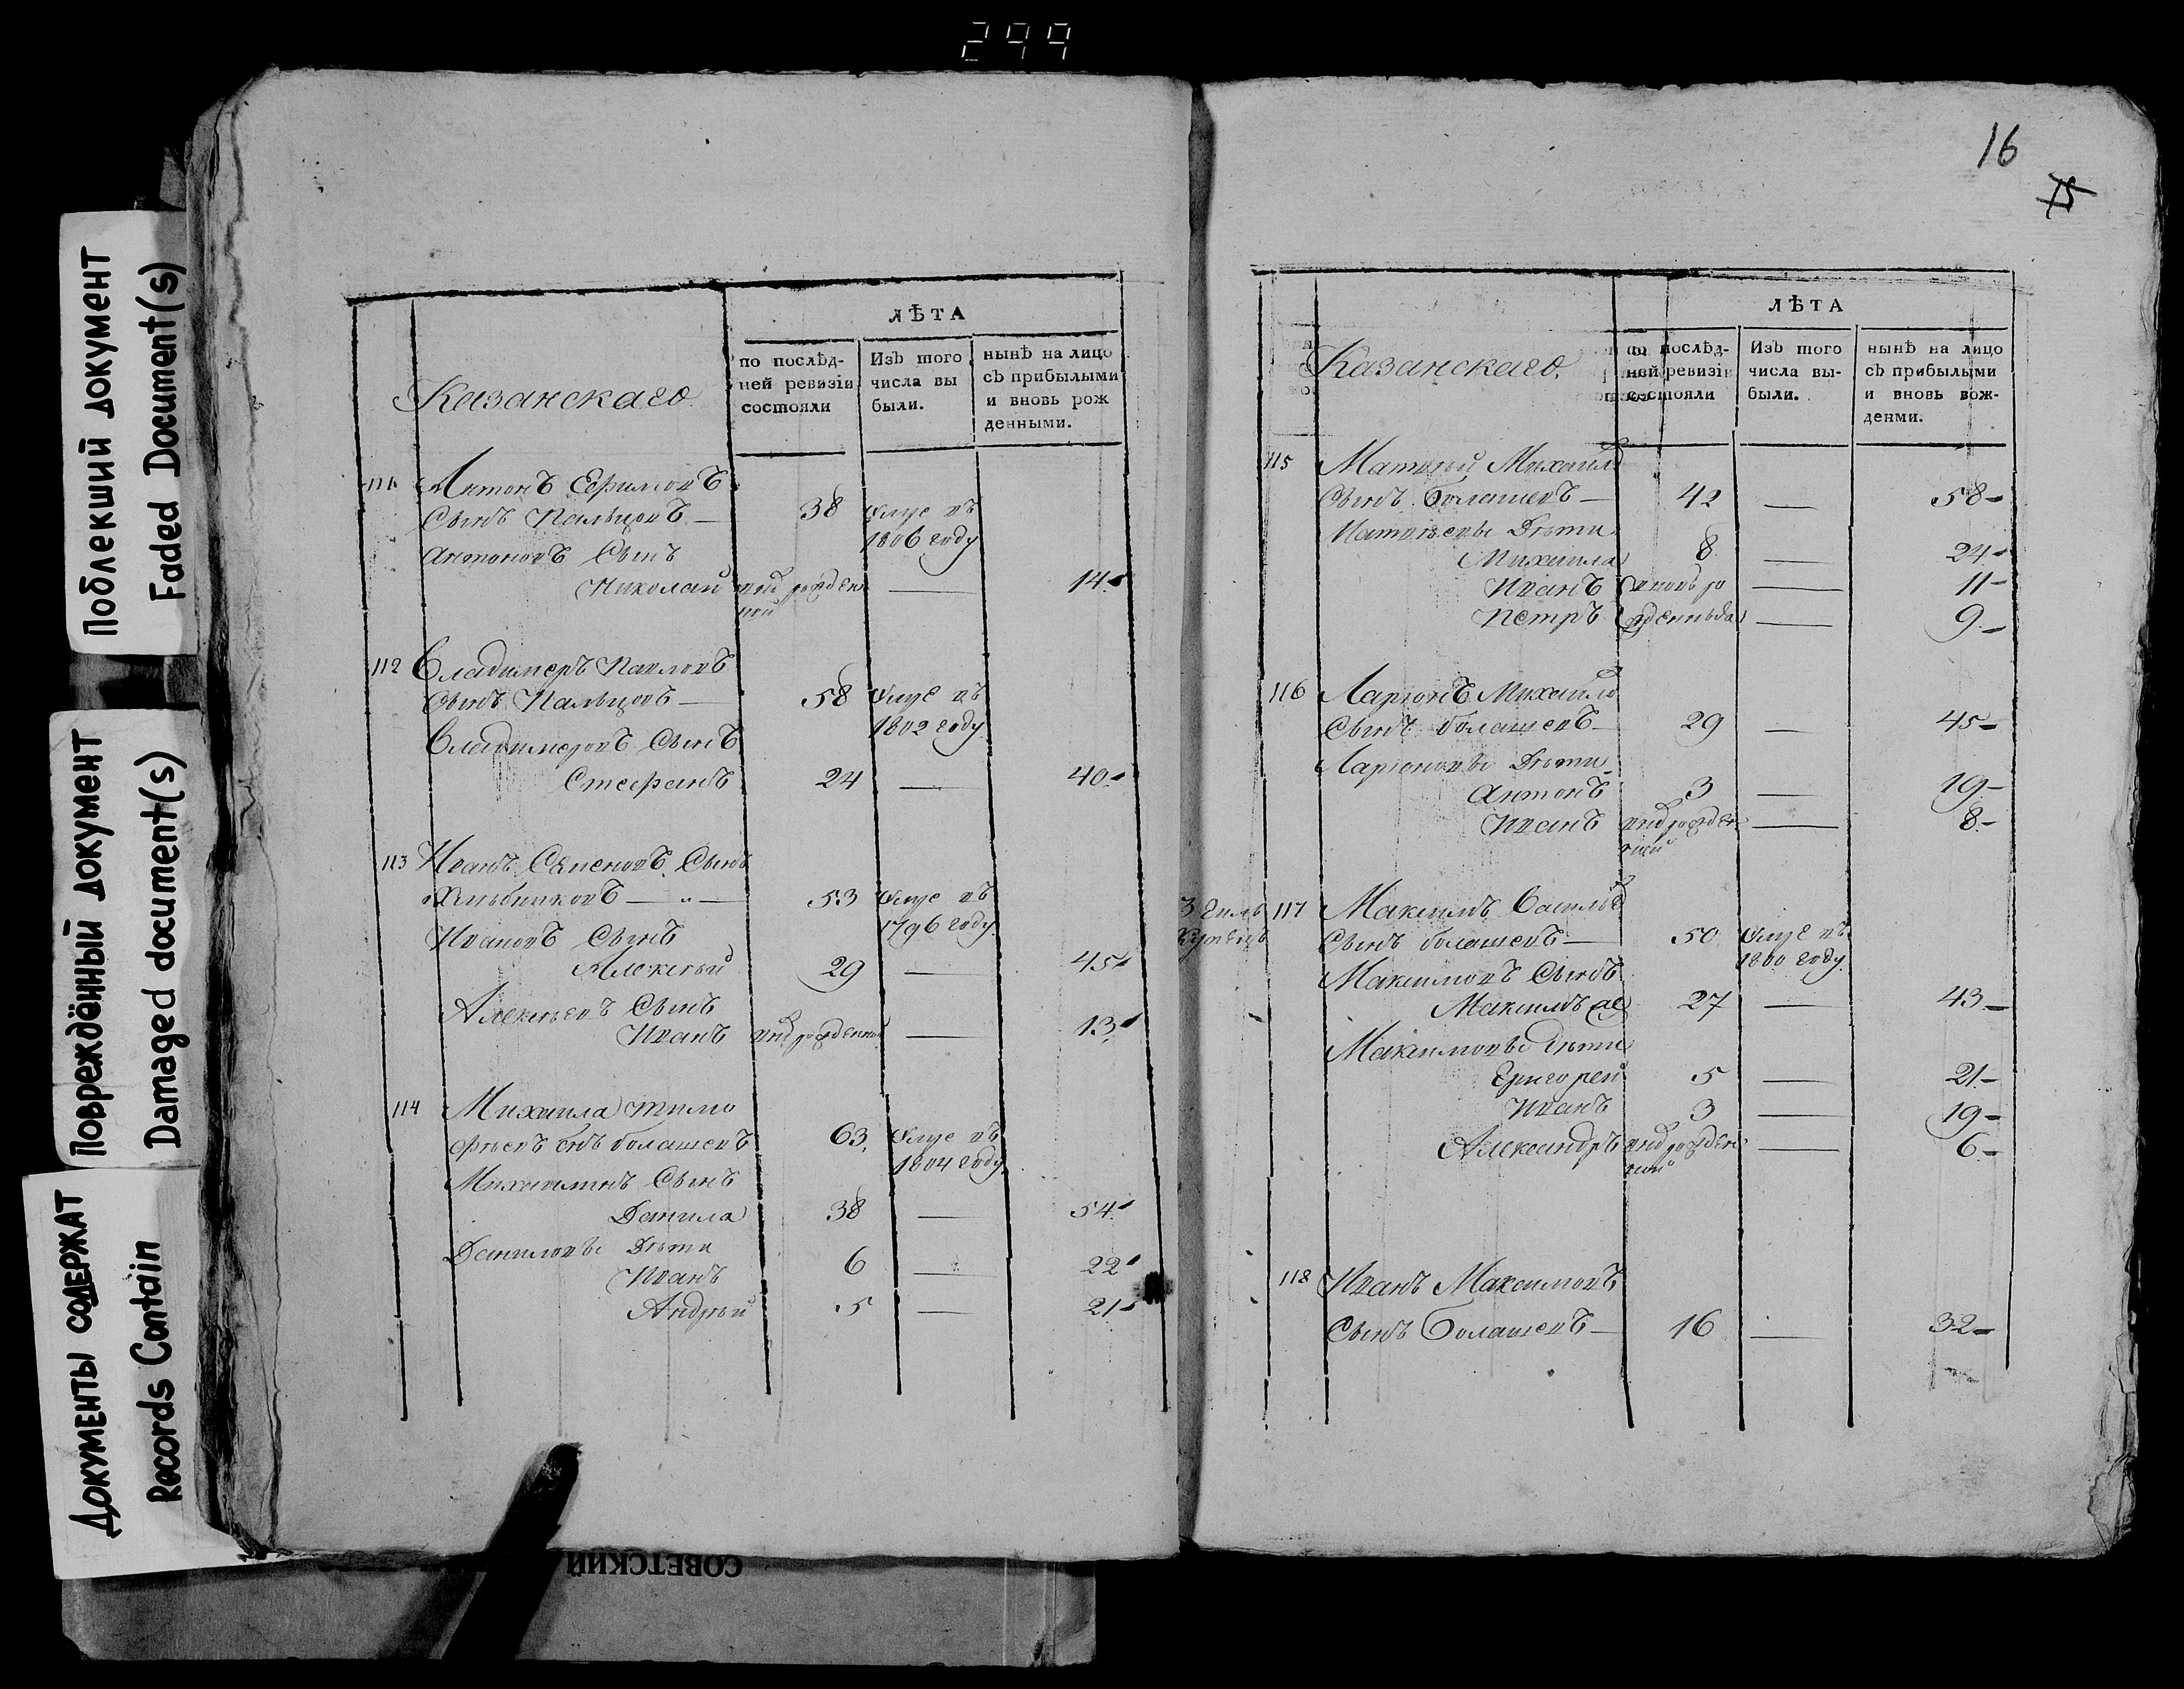 299
Поблекший документ
Faded Document(s)
Повреждённый документ
Damaged document(s)
Документы содержат
Records Contain
СОВЕТСКИЙ
Казанскаго
ЛѢТА
по послѣд-
ней ревизіи
состояли
Изъ того
числа вы
были.
нынѣ на лицо
съ прибылыми
и вновь рож
денными.
111 Антонъ Ефимовъ
Сынъ Пальцовъ — 38 умре въ
1806 году
Антоновъ Сынъ
Николай внov рожден — 14
ной
112 Владимеръ Павловъ
Сынъ Пальцовъ — 58 умре въ
1802 году
Владимеровъ Сынъ
Стефанъ 24 — 40
113 Иванъ Семеновъ Сынъ
Хлыбниковъ — 53 умре въ
1796 году
Ивановъ Сынъ
Алексѣй 29 — 45
Алексѣевъ Сынъ
Иванъ — 13
114 Михаила Тимо
фѣевъ Снъ Болашевъ 63 умре въ
1804 году
Михаилинъ Сынъ
Данила 38 — 54
Даниловы Дѣти
Иванъ 6 — 22
Андрѣй 5 — 21
16
15
Казанскаго
ЛѢТА
по послѣд-
ней ревизіи
состояли
Изъ того
числа вы-
были.
нынѣ на лицо
съ прибылыми
и вновь вож-
денми.
115 Матвѣй Михайло
Сынъ Болашевъ — 42 — 58
Матвѣевы Дѣти
Михаила 8 — 24
Иванъ вновь ро — 11
Петръ жденныя — 9
116 Ларіонъ Михайло
Сынъ Болашевъ — 29 — 45
Ларіоновы Дѣти
Антонъ 3 — 19
Иванъ — 8
3 гиль
купецъ
117 Максимъ Василье
Сынъ Болашевъ — 50 умре въ
1800 году
Максимовъ Сынъ
Максимъ же 27 — 43
Максимовы Дѣти
Григорей 5 — 21
Иванъ 3 — 19
Александръ — 6
118 Иванъ Максимовъ
Сынъ Болашевъ — 16 — 32